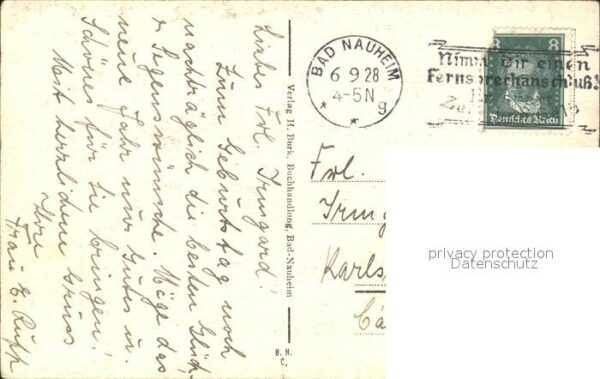 Liebes Frl. Irmgard!
Zum Geburtstag noch
nachträglich die besten Glück-
& Segenswünsche. Möge das
neue Jahr nur Gutes u.
Schönes für Sie bringen!
Mit herzlichem Gruss
Ihre
Frau E. Rupp
Verlag H. Burk, Buchhandlung, Bad-Nauheim
B. H.
C.
BAD NAUHEIM
6 9 28
4-5 N
* * g
8 8
Nimm Dir einen
Fernsprechanschluß!
Deutsches Reich
Frl.
Irmg
Karls
privacy protection
Datenschutz